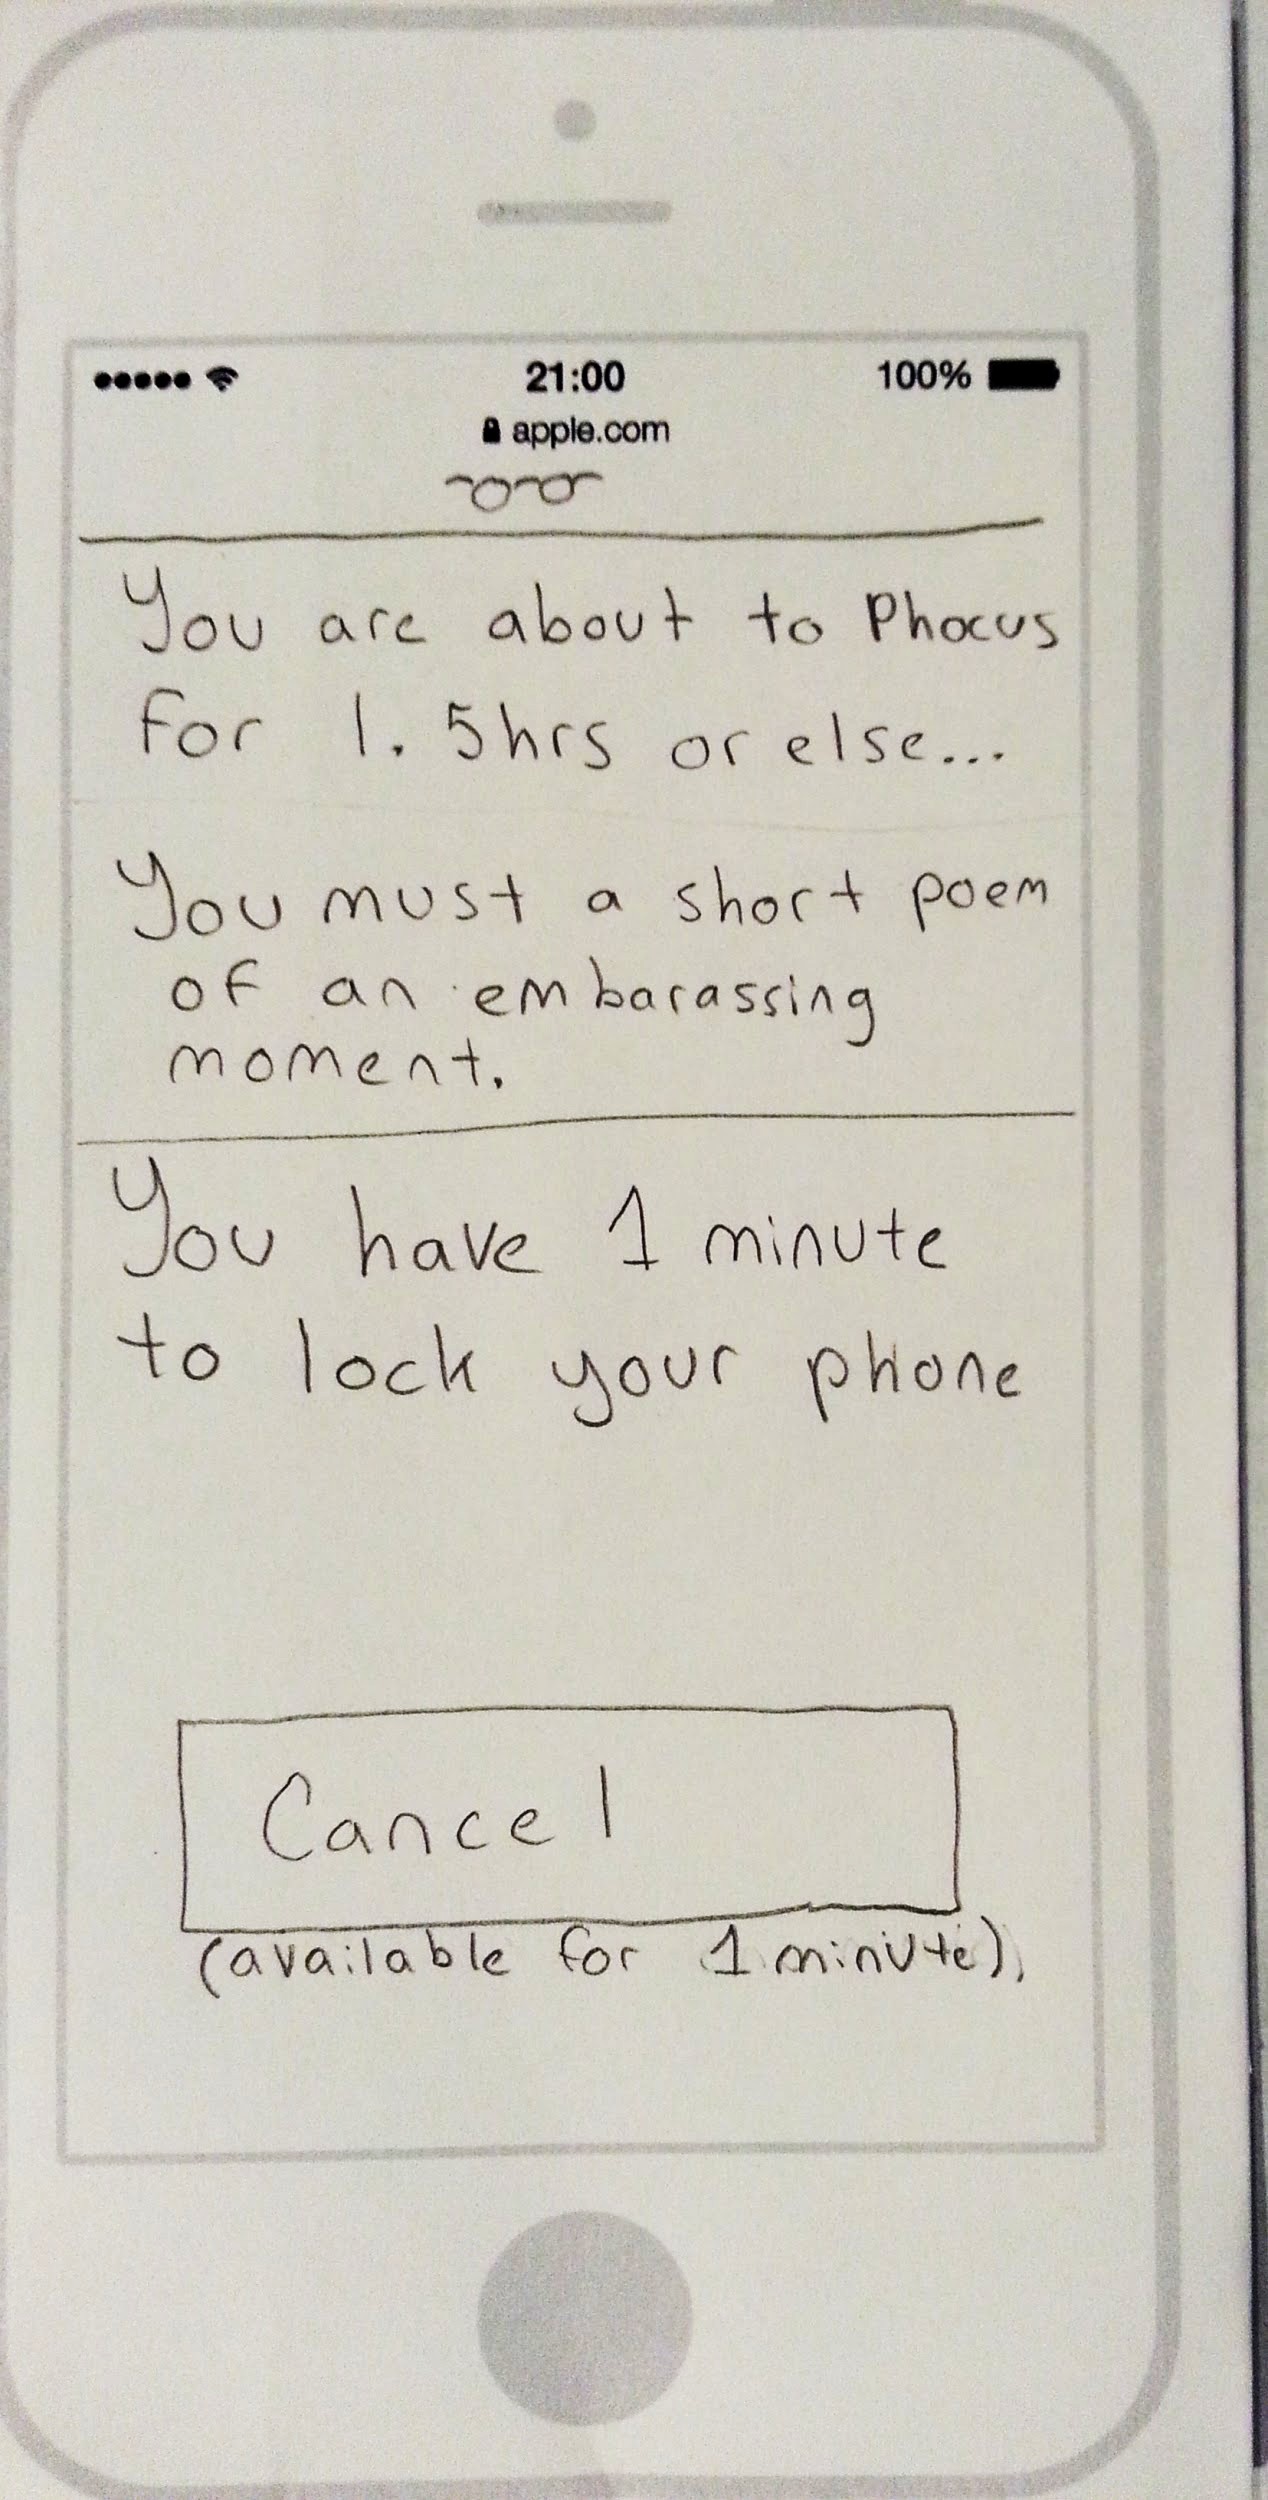 21:00
100%
apple.com
You are about to Phocus
for 1.5hrs or else...
You must a short poem
of an embarassing
moment.
You have 1 minute
to lock your phone
Cancel
(available for 1 minute).